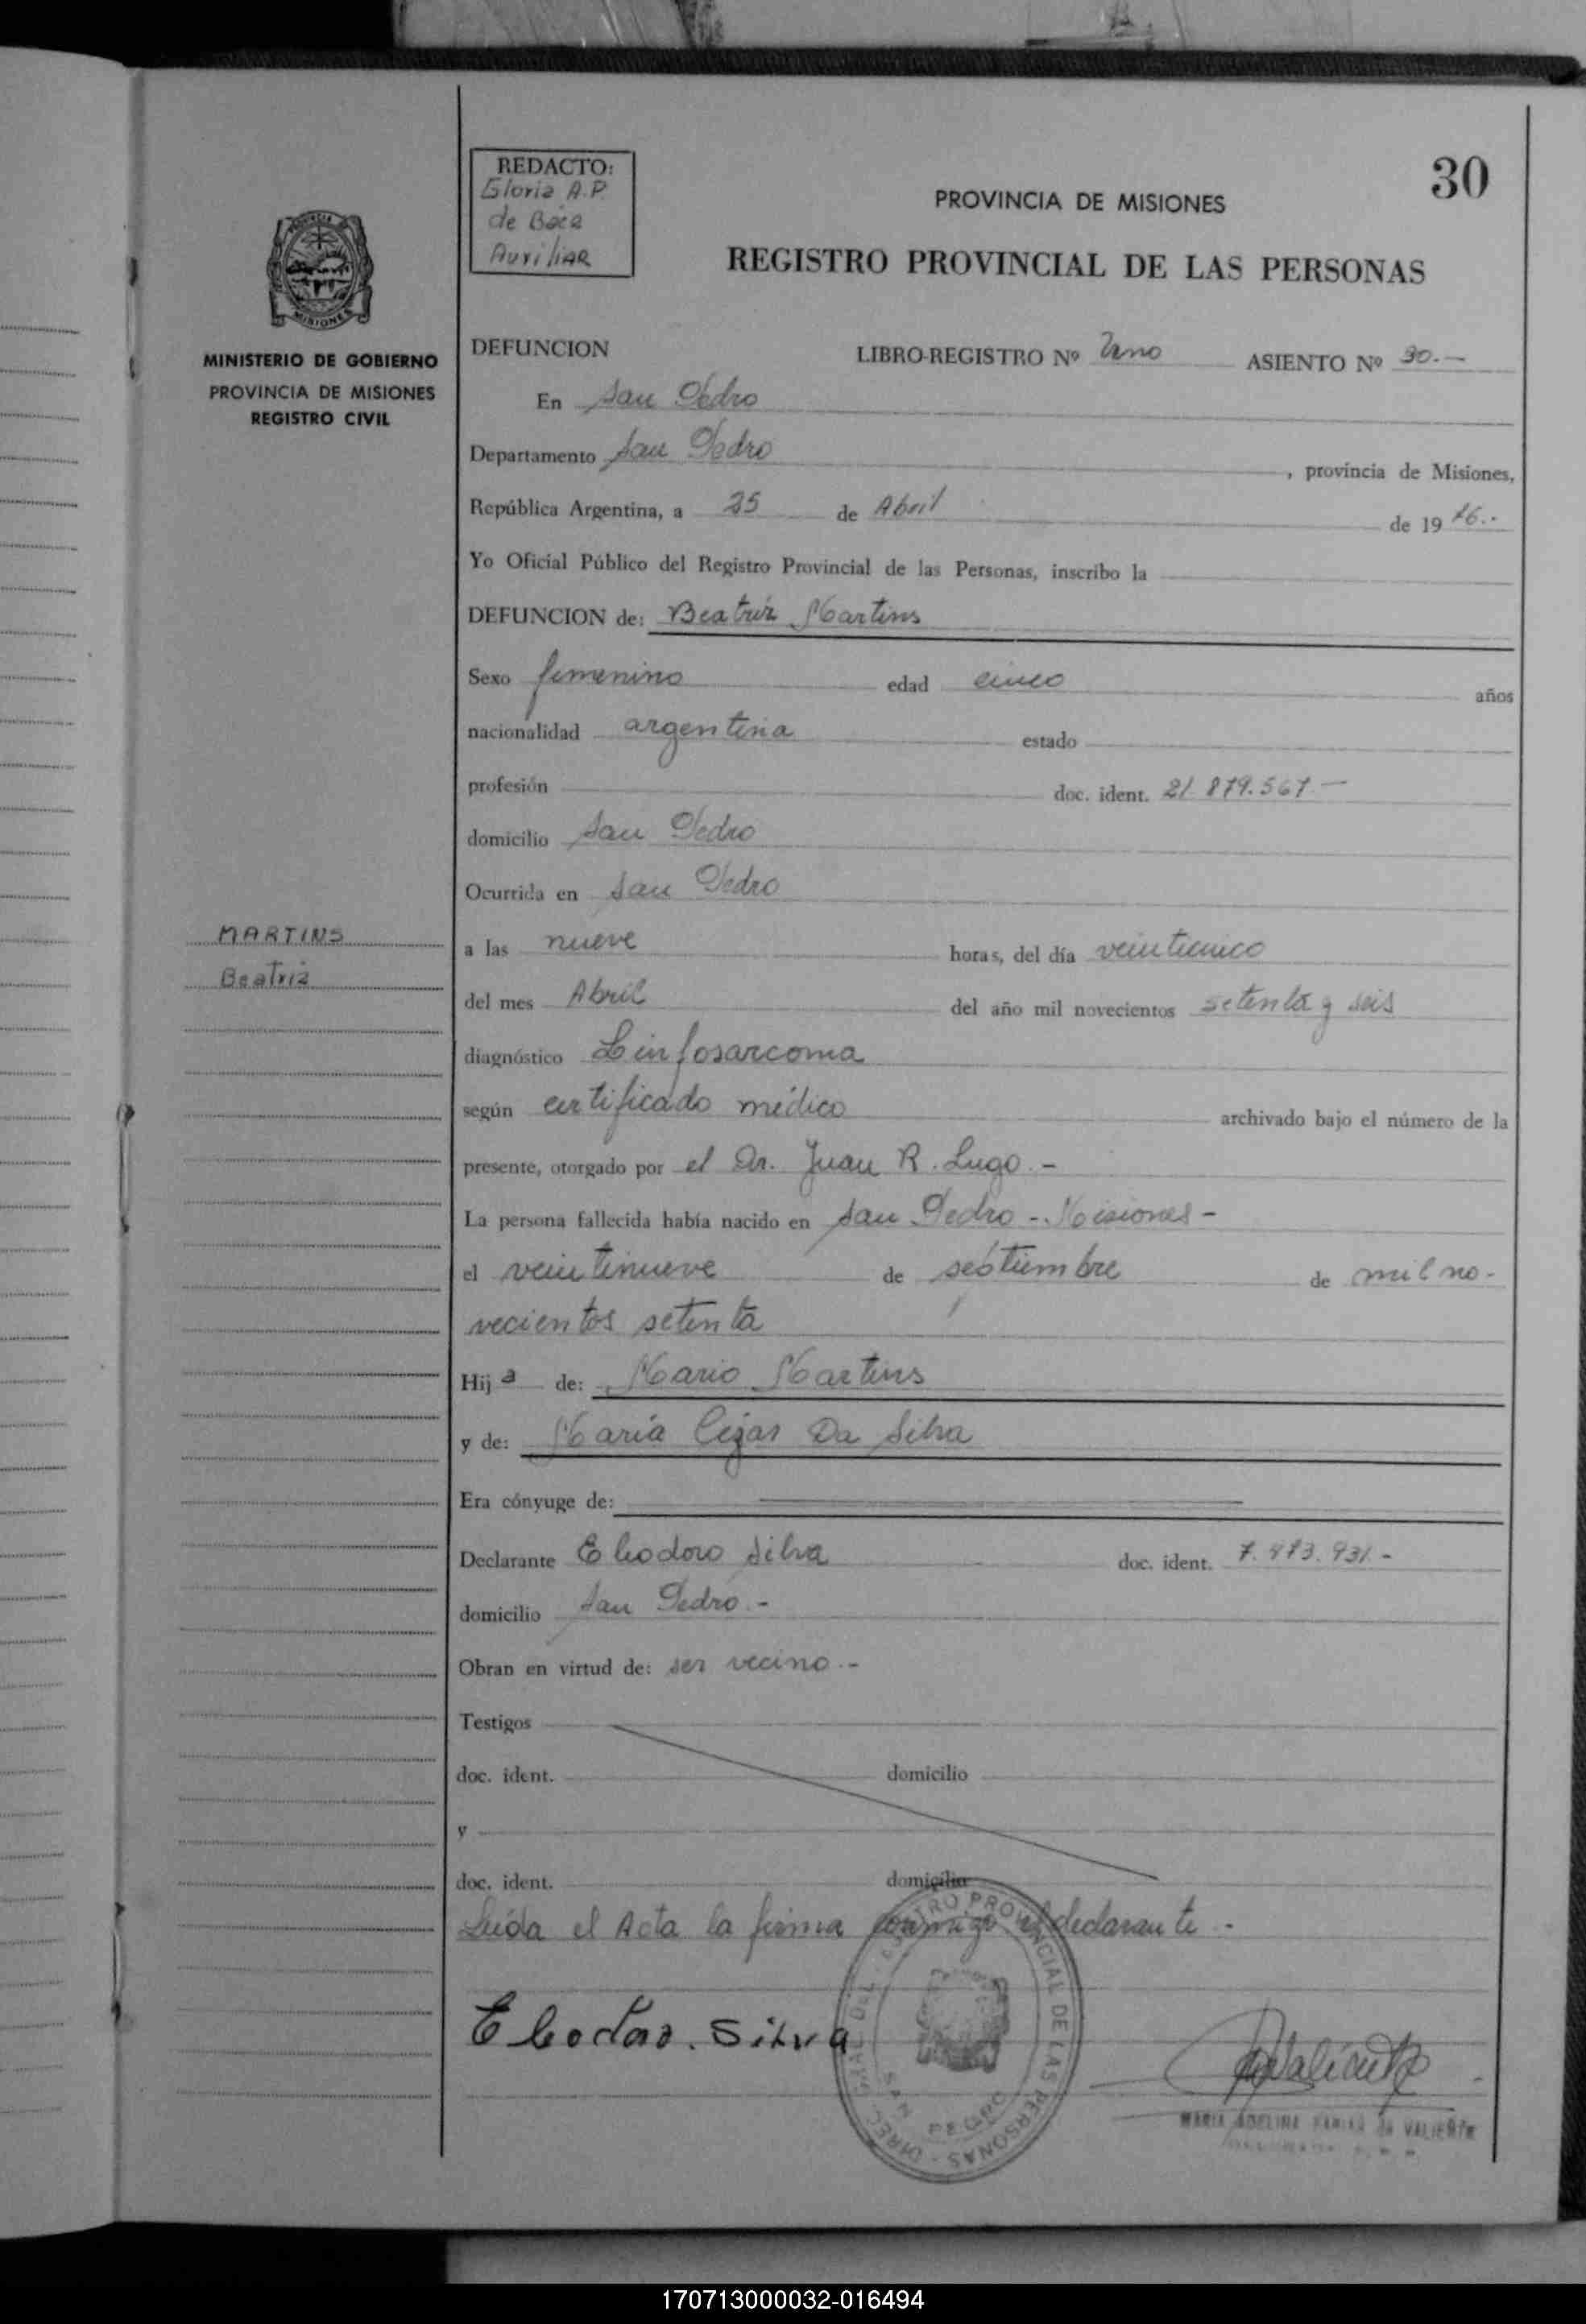 30
REDACTO:
Gloria A.P.
de Báez
Auxiliar
PROVINCIA DE MISIONES
REGISTRO PROVINCIAL DE LAS PERSONAS
MISIONES
MINISTERIO DE GOBIERNO
PROVINCIA DE MISIONES
REGISTRO CIVIL
MARTINS
Beatriz
DEFUNCION LIBRO-REGISTRO Nº Uno ASIENTO Nº 30.-
En San Pedro
Departamento San Pedro , provincia de Misiones,
República Argentina, a 25 de Abril de 19 76.-
Yo Oficial Público del Registro Provincial de las Personas, inscribo la
DEFUNCION de: Beatriz Martins
Sexo femenino edad cinco años
nacionalidad argentina estado
profesión doc. ident. 21.879.567.-
domicilio San Pedro
Ocurrida en San Pedro
a las nueve horas, del día veinticinco
del mes Abril del año mil novecientos setenta y seis
diagnóstico Linfosarcoma
según certificado médico archivado bajo el número de la
presente, otorgado por el Dr. Juan R. Lugo.-
La persona fallecida había nacido en San Pedro - Misiones -
el veintinueve de septiembre de mil no-
vecientos setenta
Hija de: Mario Martins
y de: María Da Silva
Era cónyuge de:
Declarante Eleodoro Silva doc. ident. 7.473.931.-
domicilio San Pedro.-
Obran en virtud de: ser vecino.-
Testigos
doc. ident. domicilio
y
doc. ident. domicilio
Leída el Acta la firma conmigo el declarante.-
Eleodoro. Silva
REGISTRO PROVINCIAL DE LAS PERSONAS
SAN PEDRO
MARIA ADELINA de VALIENTE
170713000032-016494